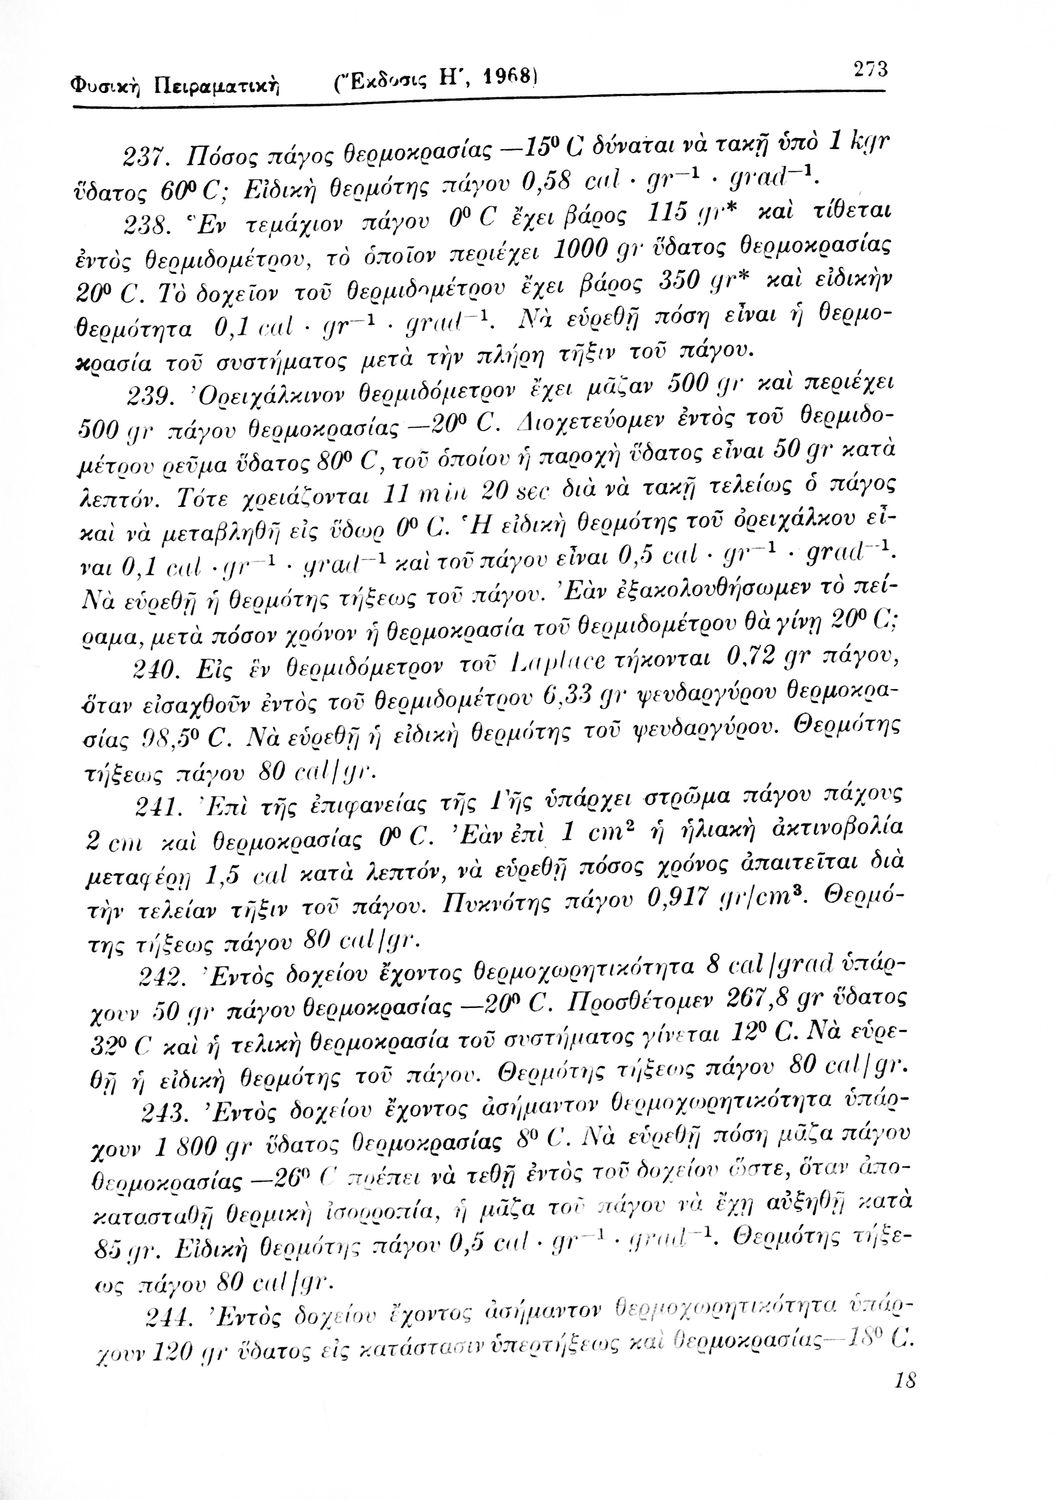 Φυσικὴ Πειραματικὴ (Ἔκδοσις Η΄, 1968) 273
237. Πόσος πάγος θερμοκρασίας —15⁰ C δύναται νὰ τακῇ ὑπὸ 1 kgr
ὕδατος 60⁰ C; Εἰδικὴ θερμότης πάγου 0,58 cal · gr⁻¹ · grad⁻¹.
238. Ἓν τεμάχιον πάγου 0⁰ C ἔχει βάρος 115 gr* καὶ τίθεται
ἐντὸς θερμιδομέτρου, τὸ ὁποῖον περιέχει 1000 gr ὕδατος θερμοκρασίας
20⁰ C. Τὸ δοχεῖον τοῦ θερμιδομέτρου ἔχει βάρος 350 gr* καὶ εἰδικὴν
θερμότητα 0,1 cal · gr⁻¹ · grad⁻¹. Νὰ εὑρεθῇ πόση εἶναι ἡ θερμο-
κρασία τοῦ συστήματος μετὰ τὴν πλήρη τῆξιν τοῦ πάγου.
239. Ὀρειχάλκινον θερμιδόμετρον ἔχει μᾶζαν 500 gr καὶ περιέχει
500 gr πάγου θερμοκρασίας —20⁰ C. Διοχετεύομεν ἐντὸς τοῦ θερμιδο-
μέτρου ρεῦμα ὕδατος 80⁰ C, τοῦ ὁποίου ἡ παροχὴ ὕδατος εἶναι 50 gr κατὰ
λεπτόν. Τότε χρειάζονται 11 min 20 sec διὰ νὰ τακῇ τελείως ὁ πάγος
καὶ νὰ μεταβληθῇ εἰς ὕδωρ 0⁰ C. Ἡ εἰδικὴ θερμότης τοῦ ὀρειχάλκου εἶ-
ναι 0,1 cal · gr⁻¹ · grad⁻¹ καὶ τοῦ πάγου εἶναι 0,5 cal · gr⁻¹ · grad⁻¹.
Νὰ εὑρεθῇ ἡ θερμότης τήξεως τοῦ πάγου. Ἐὰν ἐξακολουθήσωμεν τὸ πεί-
ραμα, μετὰ πόσον χρόνον ἡ θερμοκρασία τοῦ θερμιδομέτρου θὰ γίνῃ 20⁰ C;
240. Εἰς ἓν θερμιδόμετρον τοῦ Laplace τήκονται 0,72 gr πάγου,
ὅταν εἰσαχθοῦν ἐντὸς τοῦ θερμιδομέτρου 6,33 gr ψευδαργύρου θερμοκρα-
σίας 98,5⁰ C. Νὰ εὑρεθῇ ἡ εἰδικὴ θερμότης τοῦ ψευδαργύρου. Θερμότης
τήξεως πάγου 80 cal/gr.
241. Ἐπὶ τῆς ἐπιφανείας τῆς Γῆς ὑπάρχει στρῶμα πάγου πάχους
2 cm καὶ θερμοκρασίας 0⁰ C. Ἐὰν ἐπὶ 1 cm² ἡ ἡλιακὴ ἀκτινοβολία
μεταφέρῃ 1,5 cal κατὰ λεπτόν, νὰ εὑρεθῇ πόσος χρόνος ἀπαιτεῖται διὰ
τὴν τελείαν τῆξιν τοῦ πάγου. Πυκνότης πάγου 0,917 gr/cm³. Θερμό-
της τήξεως πάγου 80 cal/gr.
242. Ἐντὸς δοχείου ἔχοντος θερμοχωρητικότητα 8 cal/grad ὑπάρ-
χουν 50 gr πάγου θερμοκρασίας —20⁰ C. Προσθέτομεν 267,8 gr ὕδατος
32⁰ C καὶ ἡ τελικὴ θερμοκρασία τοῦ συστήματος γίνεται 12⁰ C. Νὰ εὑρε-
θῇ ἡ εἰδικὴ θερμότης τοῦ πάγου. Θερμότης τήξεως πάγου 80 cal/gr.
243. Ἐντὸς δοχείου ἔχοντος ἀσήμαντον θερμοχωρητικότητα ὑπάρ-
χουν 1 800 gr ὕδατος θερμοκρασίας 8⁰ C. Νὰ εὑρεθῇ πόση μᾶζα πάγου
θερμοκρασίας —26⁰ C πρέπει νὰ τεθῇ ἐντὸς τοῦ δοχείου ὥστε, ὅταν ἀπο-
κατασταθῇ θερμικὴ ἰσορροπία, ἡ μᾶζα τοῦ πάγου νὰ ἔχῃ αὐξηθῆ κατὰ
85 gr. Εἰδικὴ θερμότης πάγου 0,5 cal · gr⁻¹ · grad⁻¹. Θερμότης τήξε-
ως πάγου 80 cal/gr.
244. Ἐντὸς δοχείου ἔχοντος ἀσήμαντον θερμοχωρητικότητα ὑπάρ-
χουν 120 gr ὕδατος εἰς κατάστασιν ὑπερτήξεως καὶ θερμοκρασίας —18⁰ C.
18